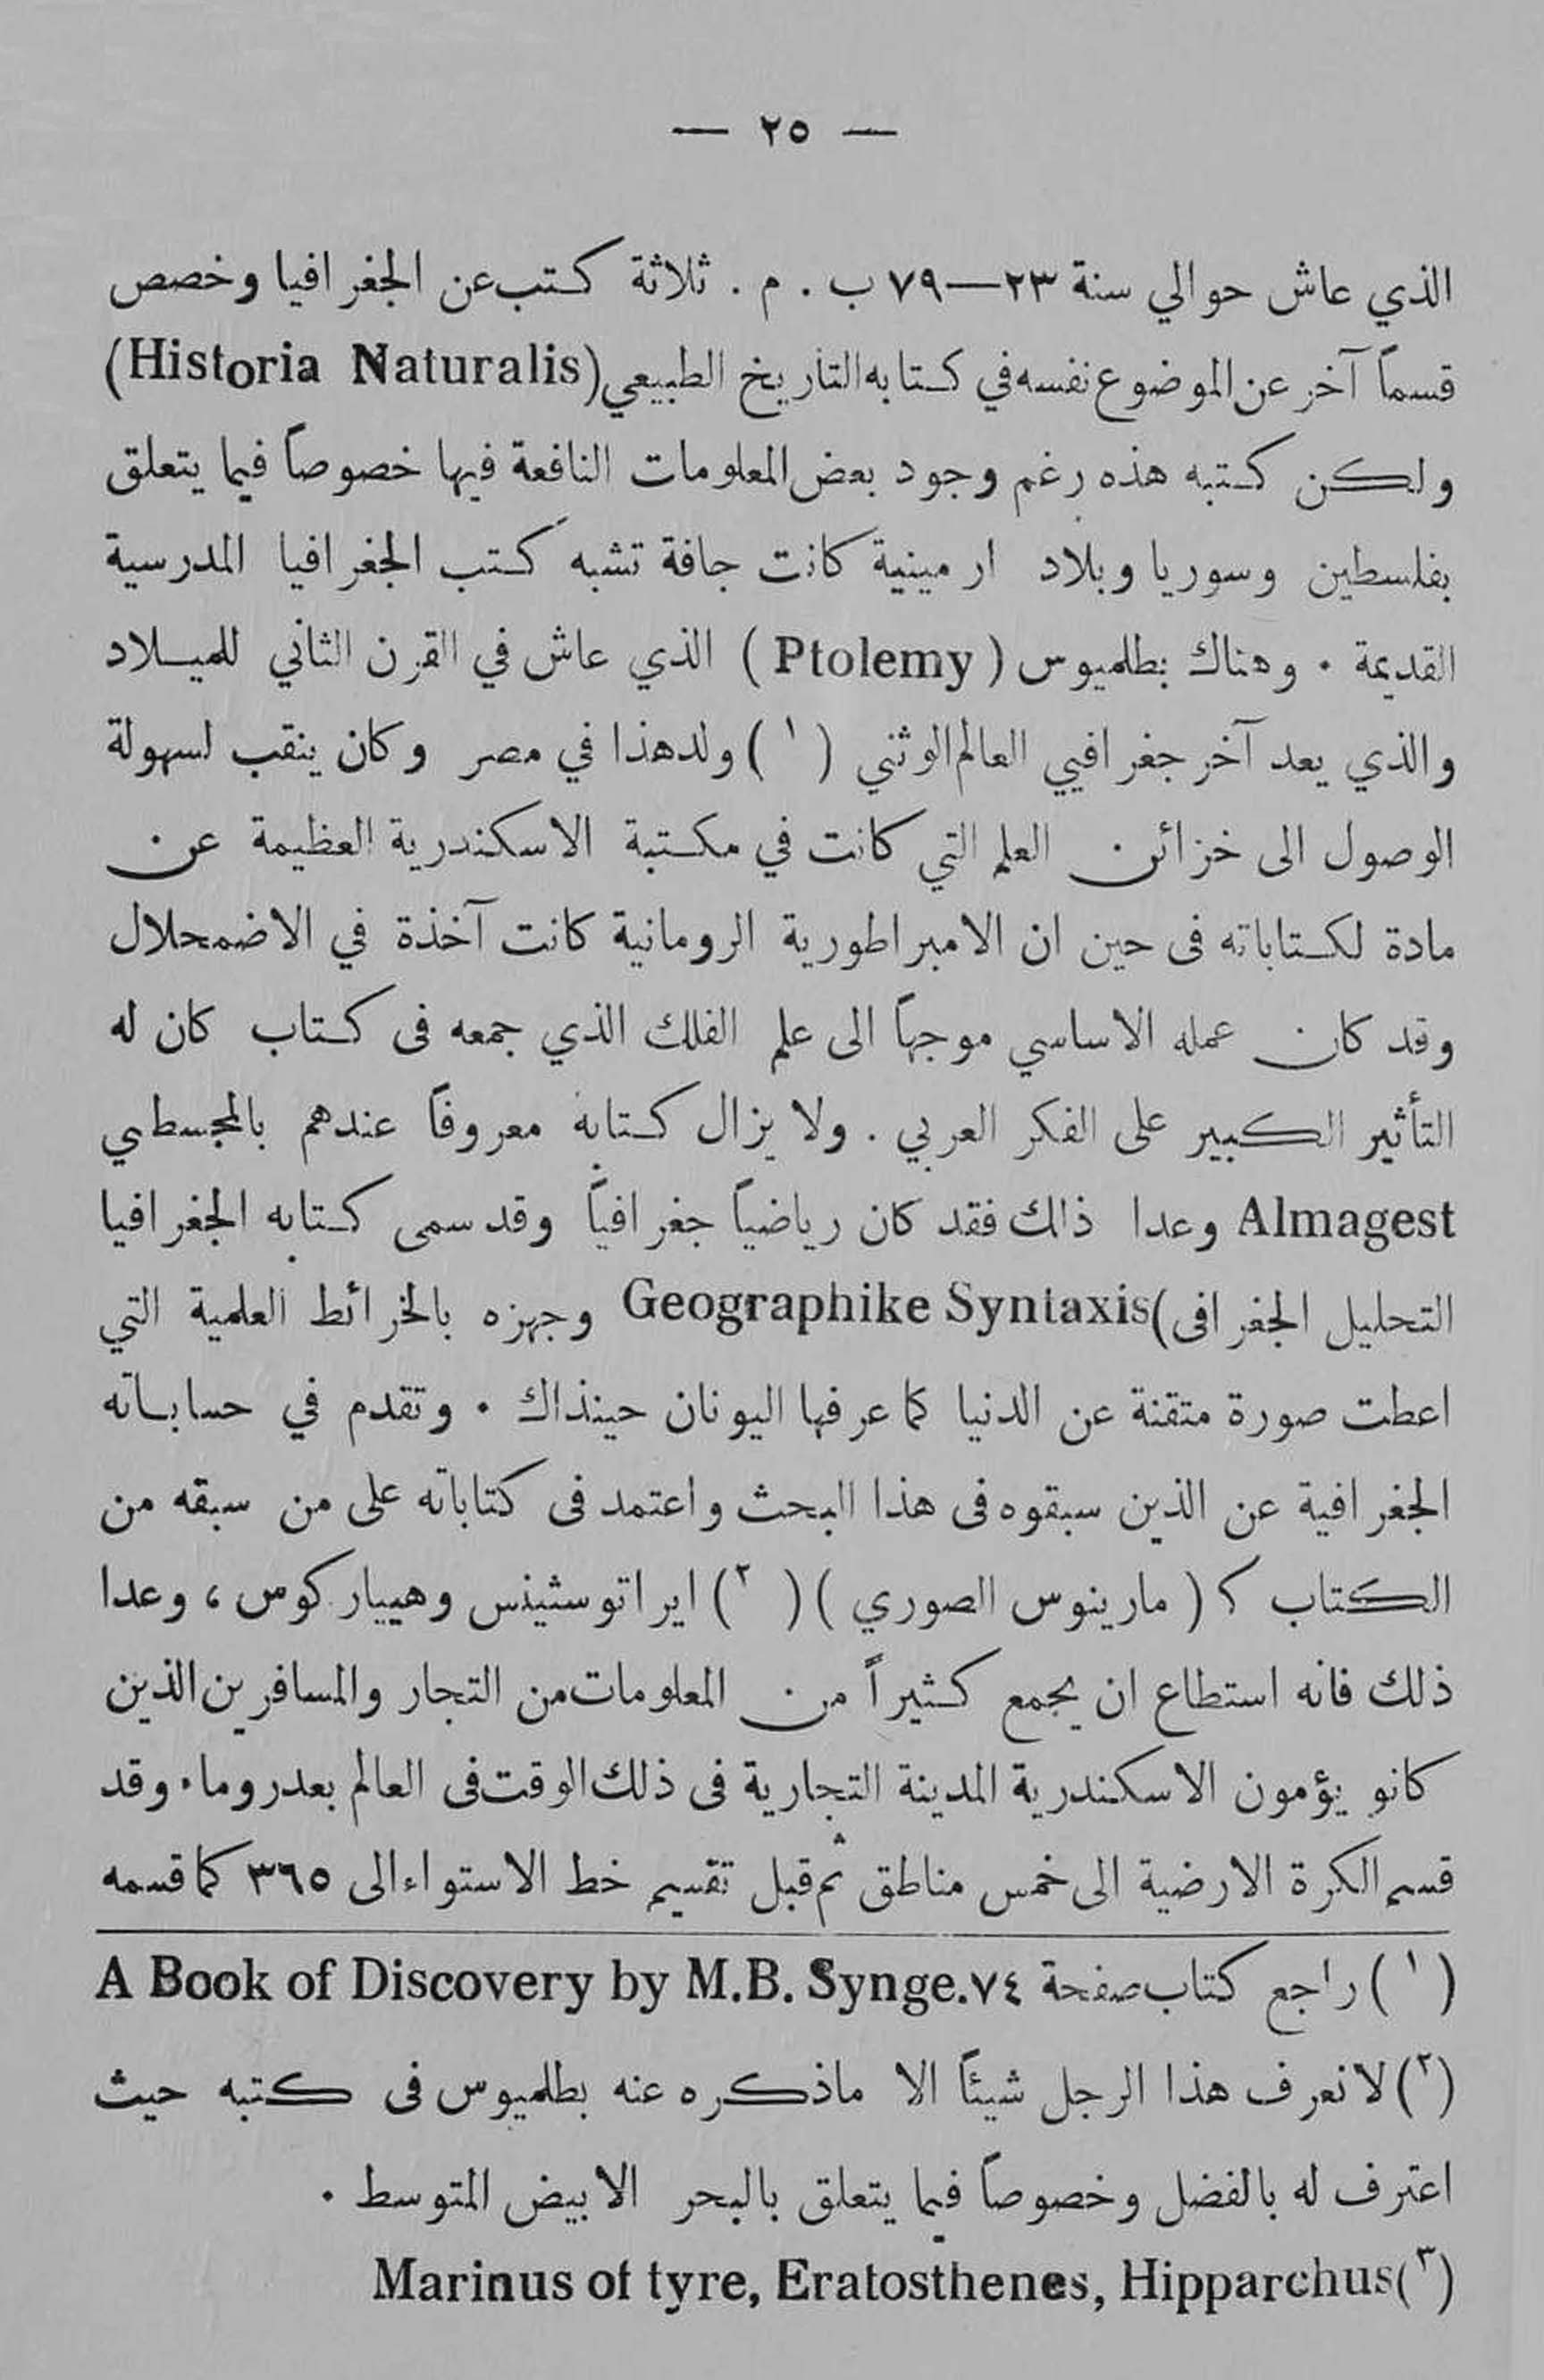 — ٢٥ —
الذي عاش حوالي سنة ٢٣—٧٩ ب . م . ثلاثة كتب عن الجغرافيا وخصص
قسماً آخر عن الموضوع نفسه في كتابه التأريخ الطبيعي (Historia Naturalis)
ولكن كتبه هذه رغم وجود بعض المعلومات النافعة فيها خصوصاً فيما يتعلق
بفلسطين وسوريا وبلاد ارمينية كانت جافة تشبه كتب الجغرافيا المدرسية
القديمة . وهناك بطلميوس ( Ptolemy ) الذي عاش في القرن الثاني للميلاد
والذي يعد آخر جغرافيي العالم الوثني ( ١ ) ولد هذا في مصر وكان ينقب لسهولة
الوصول الى خزائن العلم التي كانت في مكتبة الاسكندرية العظيمة عن
مادة لكتاباته فى حين ان الامبراطورية الرومانية كانت آخذة في الاضمحلال
وقد كان عمله الاساسي موجهاً الى علم الفلك الذي جمعه فى كتاب كان له
التأثير الكبير على الفكر العربي . ولا يزال كتابه معروفاً عندهم بالمجسطي
Almagest وعدا ذلك فقد كان رياضياً جغرافياً وقد سمى كتابه الجغرافيا
التحليل الجغرافى) Geographike Syntaxis وجهزه بالخرائط العلمية التي
اعطت صورة متقنة عن الدنيا كما عرفها اليونان حينذاك . وتقدم في حساباته
الجغرافية عن الذين سبقوه فى هذا البحث واعتمد فى كتاباته على من سبقه من
الكتاب ك ( مارينوس الصوري ) ( ٢ ) ايراتوسثينس وهيپاركوس ، وعدا
ذلك فانه استطاع ان يجمع كثيراً من المعلومات من التجار والمسافرين الذين
كانو يؤمون الاسكندرية المدينة التجارية فى ذلك الوقت فى العالم بعد روما . وقد
قسم الكرة الارضية الى خمس مناطق ثم قبل تقسيم خط الاستواء الى ٣٦٥ كما قسمه
( ١ ) راجع كتاب صفحة ٧٤ .A Book of Discovery by M.B. Synge
(٢) لا نعرف هذا الرجل شيئاً الا ماذكره عنه بطلميوس فى كتبه حيث
اعترف له بالفضل وخصوصاً فيما يتعلق بالبحر الابيض المتوسط .
(٣) Marinus of tyre, Eratosthenes, Hipparchus